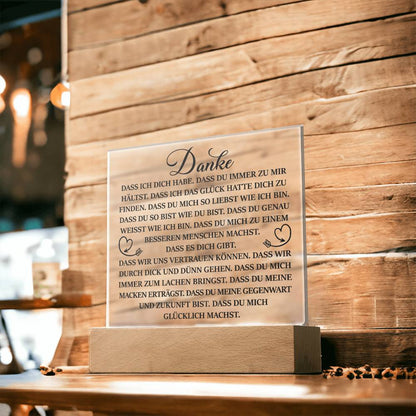 Danke
DASS ICH DICH HABE. DASS DU IMMER ZU MIR
HÄLTST. DASS ICH DAS GLÜCK HATTE DICH ZU
FINDEN. DASS DU MICH SO LIEBST WIE ICH BIN.
DASS DU SO BIST WIE DU BIST. DASS DU GENAU
WEISST WIE ICH BIN. DASS DU MICH ZU EINEM
BESSEREN MENSCHEN MACHST.
DASS ES DICH GIBT.
DASS WIR UNS VERTRAUEN KÖNNEN. DASS WIR
DURCH DICK UND DÜNN GEHEN. DASS DU MICH
IMMER ZUM LACHEN BRINGST. DASS DU MEINE
MACKEN ERTRÄGST. DASS DU MEINE GEGENWART
UND ZUKUNFT BIST. DASS DU MICH
GLÜCKLICH MACHST.